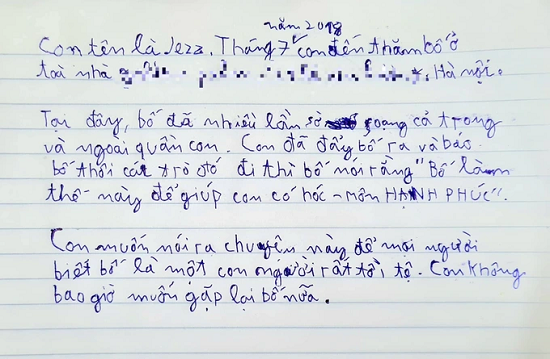 năm 2018
Con tên là Jezz. Tháng 7 con đến thăm bố ở
toà nhà Hà nội.
Tại đây, bố đã nhiều lần sờ soạng cả trong
và ngoài quần con. Con đã đẩy bố ra và bảo
bố thôi cái trò đó đi thì bố nói rằng "Bố làm
thế này để giúp con có hóc-môn HẠNH PHÚC".
Con muốn nói ra chuyện này để mọi người
biết bố là một con người rất tồi tệ. Con không
bao giờ muốn gặp lại bố nữa.